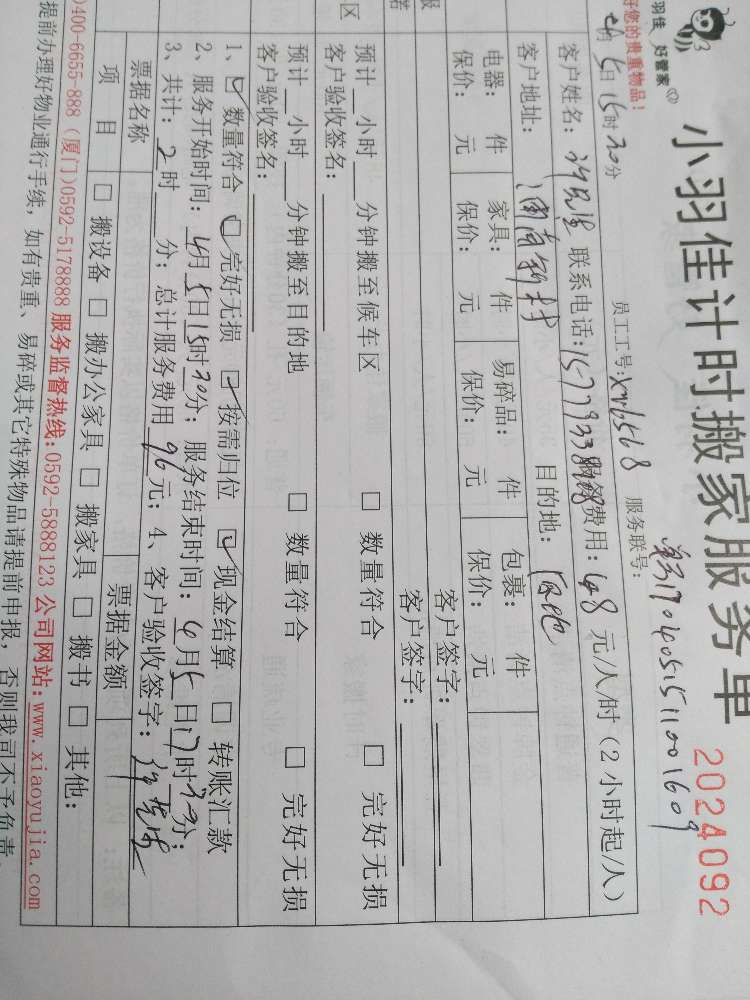 羽佳 好管家
小羽佳计时搬家服务单
2024092
好您的贵重物品！
5日15时30分
员工工号：xm6568
服务联号：
客户姓名：
联系电话：
费用：48元/人/时（2小时起/人）
客户地址：
目的地：
电器： 件 家具： 件 易碎品： 件 包裹： 件
保价： 元 保价： 元 保价： 元 保价： 元
客户签字：
客户签字：
区
预计 小时 分钟搬至候车区 □ 数量符合 □ 完好无损
客户验收签名：
预计 小时 分钟搬至目的地 □ 数量符合 □ 完好无损
客户验收签名：
1、☑ 数量符合 ☑ 完好无损 ☑ 按需归位 ☑ 现金结算 □ 转账汇款
2、服务开始时间：4月5日15时30分；服务结束时间：4月5日17时30分；
3、共计：2时 分；总计服务费用96元；4、客户验收签字：
票据名称 票据金额
项 目 □ 搬设备 □ 搬办公家具 □ 搬家具 □ 搬书 □ 其他：
)400-6655-888（厦门）0592-5178888 服务监督热线：0592-5888123 公司网站：www.xiaoyujia.com
提前办理好物业通行手续，如有贵重、易碎或其它特殊物品请提前申报，否则我司不予负责